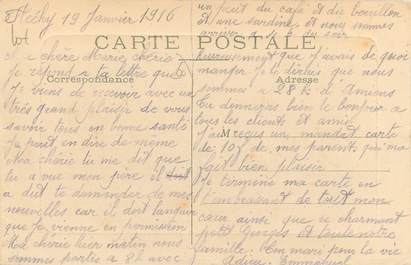 Fléchy 19 Janvier 1916
CARTE POSTALE
Correspondance
Adresse
Ma chère Marie chérie
Je répond a la lettre que
Je viens de recevoir avec un
très grand plaisir de vous
savoir tous en bonne santé
Je peut en dire de même
Ma chérie tu me dit que
tu a vue mon père il
a dut te demander de mes
nouvelles car il doit languir
que je vienne en permission
Ma chérie hier matin nous
sommes partis a 8h avec
un petit du café et du bouillon
et une sardine, et nous sommes
arriver a 4h du soir
heureusement que j'avais de quoi
manger je te dirais que nous
sommes a 28 k d'Amiens
Tu donneras bien le bonjour a
tous les clients et amis
J'ai reçus un mandat carte
de 10f de mes parents, qui m'a
fait bien plaisir
Je termine ma carte en
t'embrassant de tout mon
cœur ainsi que ce charmant
petit Georges et toute notre
famille. Ton mari pour la vie
Adieu. Emmanuel